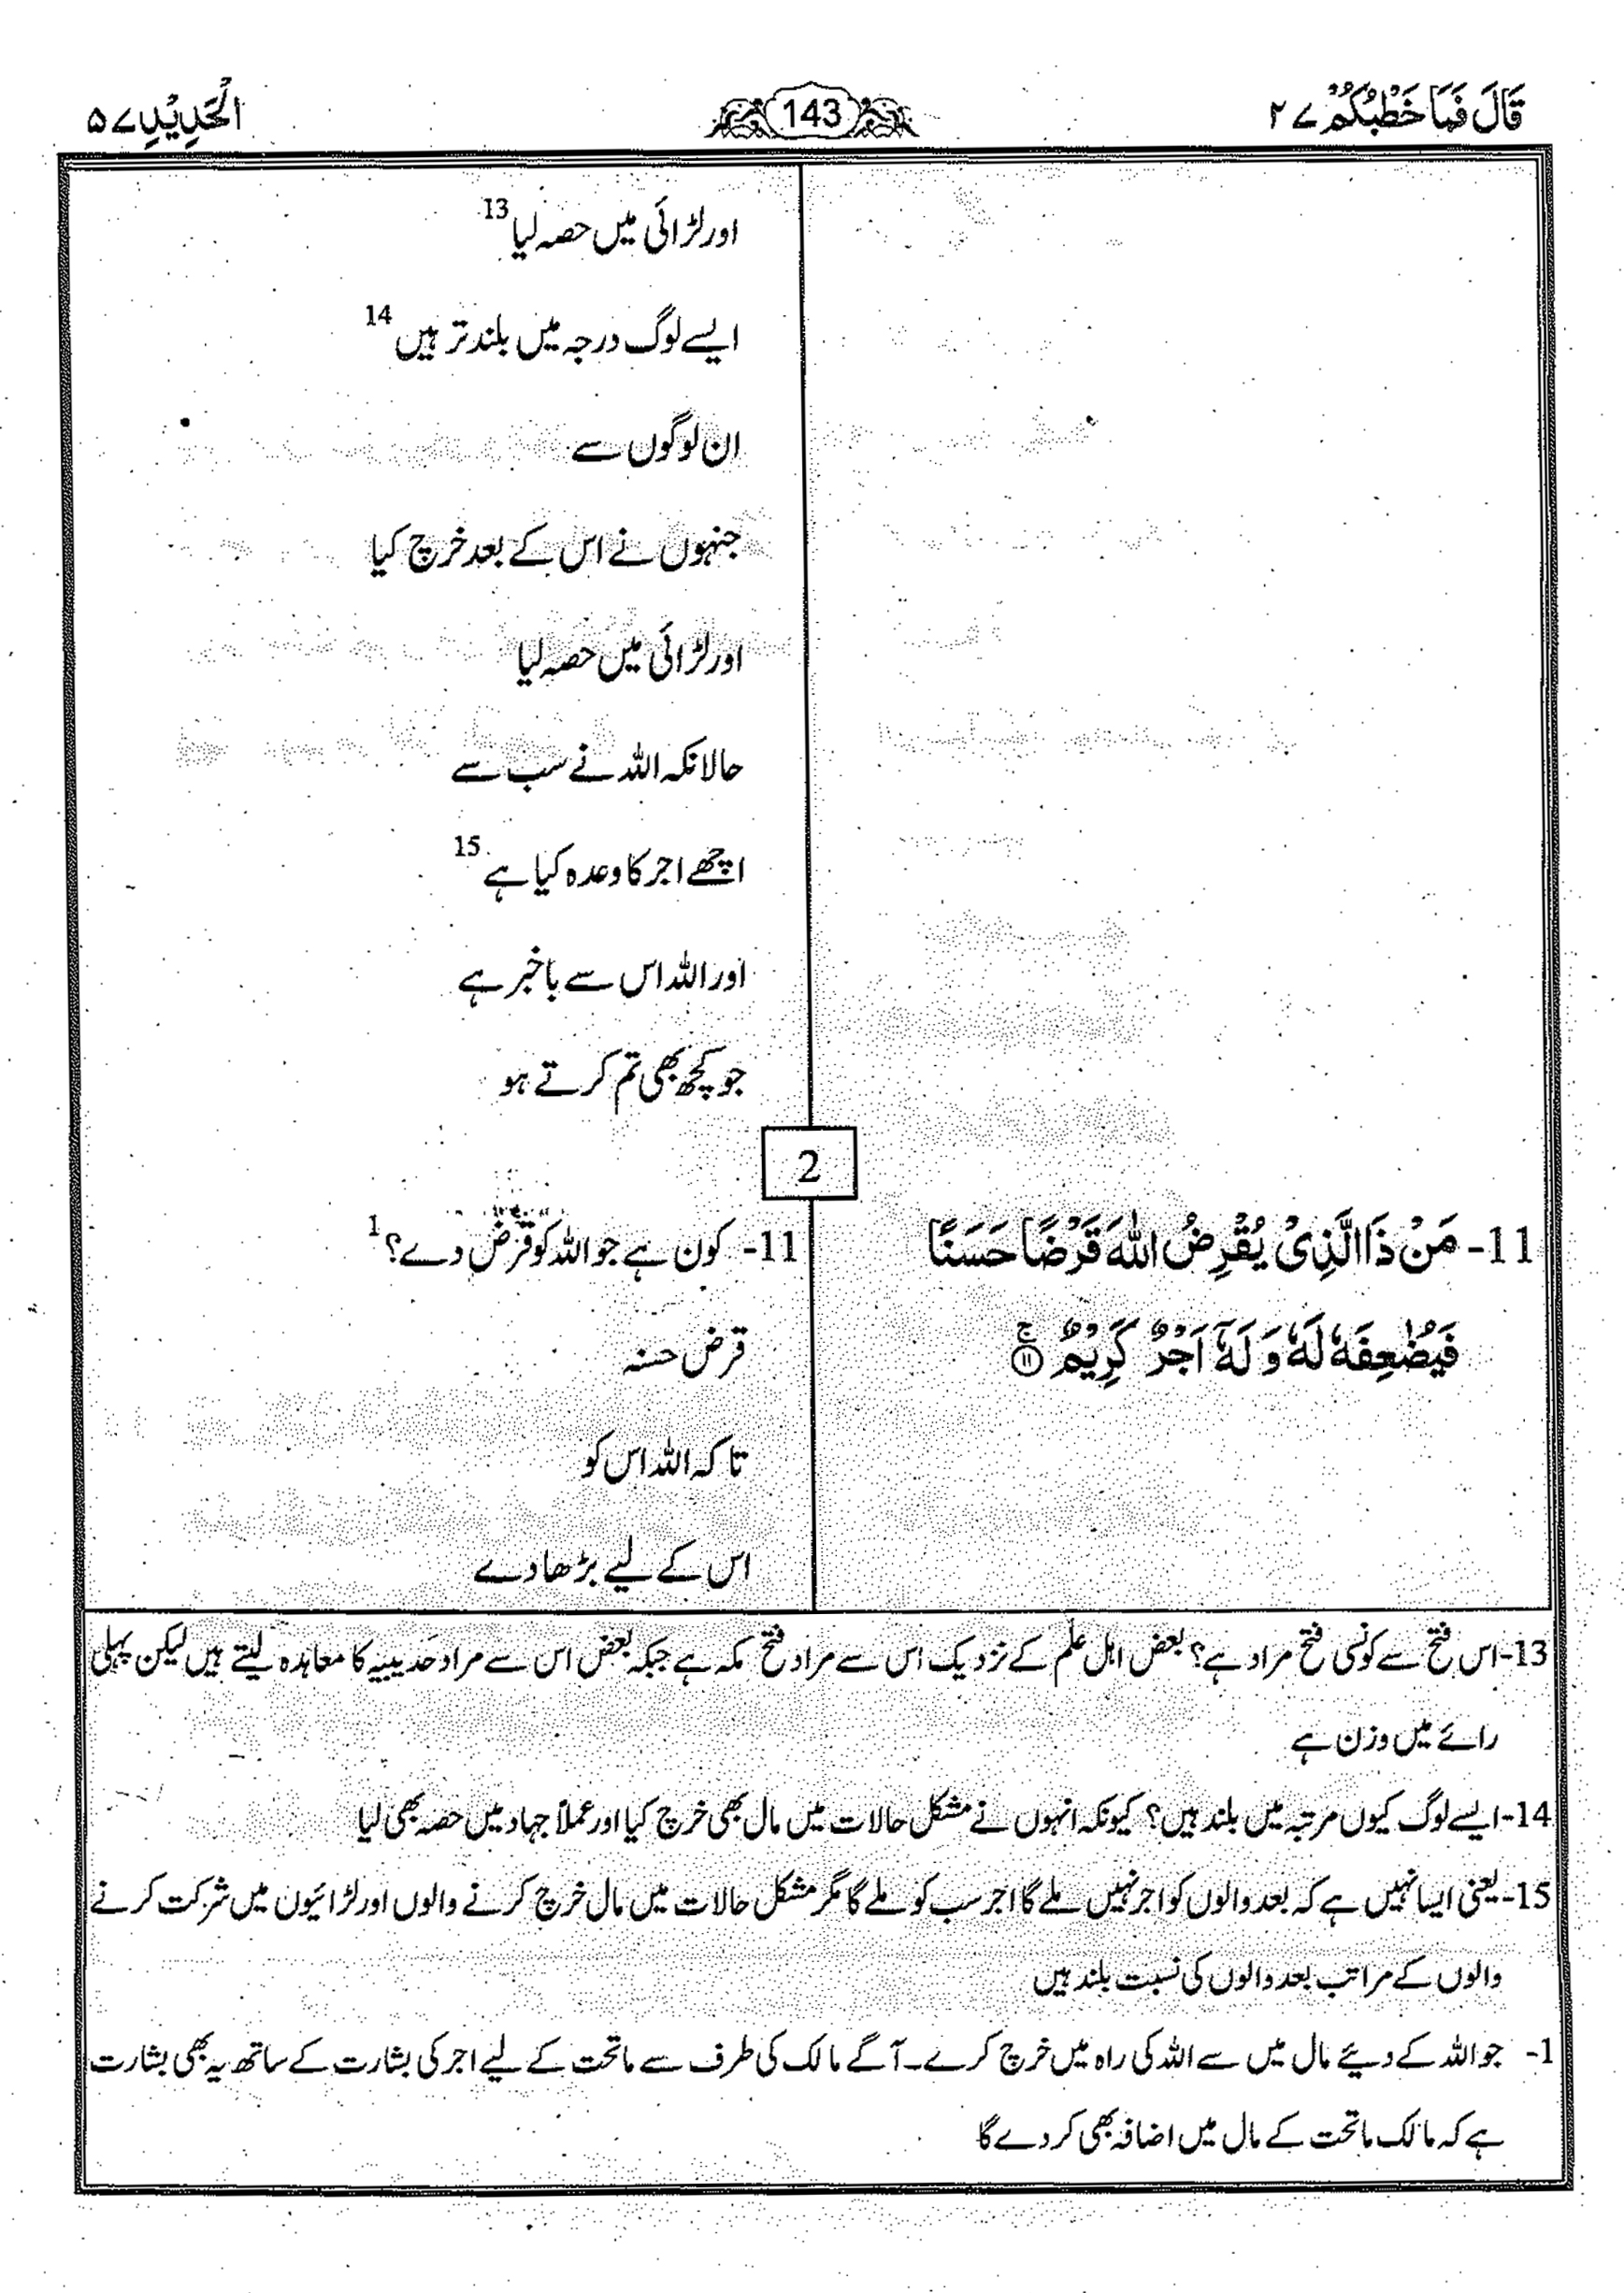 قَالَ فَمَا خَطْبُكُمْ ۲۷
143
الْحَدِيْدِ ۵۷
اور لڑائی میں حصہ لیا 13
ایسے لوگ درجہ میں بلند تر ہیں 14
ان لوگوں سے
جنہوں نے اس کے بعد خرچ کیا
اور لڑائی میں حصہ لیا
حالانکہ اللہ نے سب سے
اچھے اجر کا وعدہ کیا ہے 15
اور اللہ اس سے باخبر ہے
جو کچھ بھی تم کرتے ہو
2
11- مَنْ ذَا الَّذِىْ يُقْرِضُ اللّٰهَ قَرْضًا حَسَنًا
فَيُضٰعِفَهٗ لَهٗ وَ لَهٗۤ اَجْرٌ كَرِيْمٌ ۚ ۱۱
11- کون ہے جو اللہ کو قرض دے؟ 1
قرض حسنہ
تا کہ اللہ اس کو
اس کے لیے بڑھا دے
13-اس فتح سے کونسی فتح مراد ہے؟ بعض اہل علم کے نزدیک اس سے مراد فتح مکہ ہے جبکہ بعض اس سے مراد حُدیبیہ کا معاہدہ لیتے ہیں لیکن پہلی
رائے میں وزن ہے
14-ایسے لوگ کیوں مرتبہ میں بلند ہیں؟ کیونکہ انہوں نے مشکل حالات میں مال بھی خرچ کیا اور عملاً جہاد میں حصہ بھی لیا
15-یعنی ایسا نہیں ہے کہ بعد والوں کو اجر نہیں ملے گا اجر سب کو ملے گا مگر مشکل حالات میں مال خرچ کرنے والوں اور لڑائیوں میں شرکت کرنے
والوں کے مراتب بعد والوں کی نسبت بلند ہیں
1- جو اللہ کے دیئے مال میں سے اللہ کی راہ میں خرچ کرے۔ آگے مالک کی طرف سے ماتحت کے لیے اجر کی بشارت کے ساتھ یہ بھی بشارت
ہے کہ مالک ماتحت کے مال میں اضافہ بھی کر دے گا